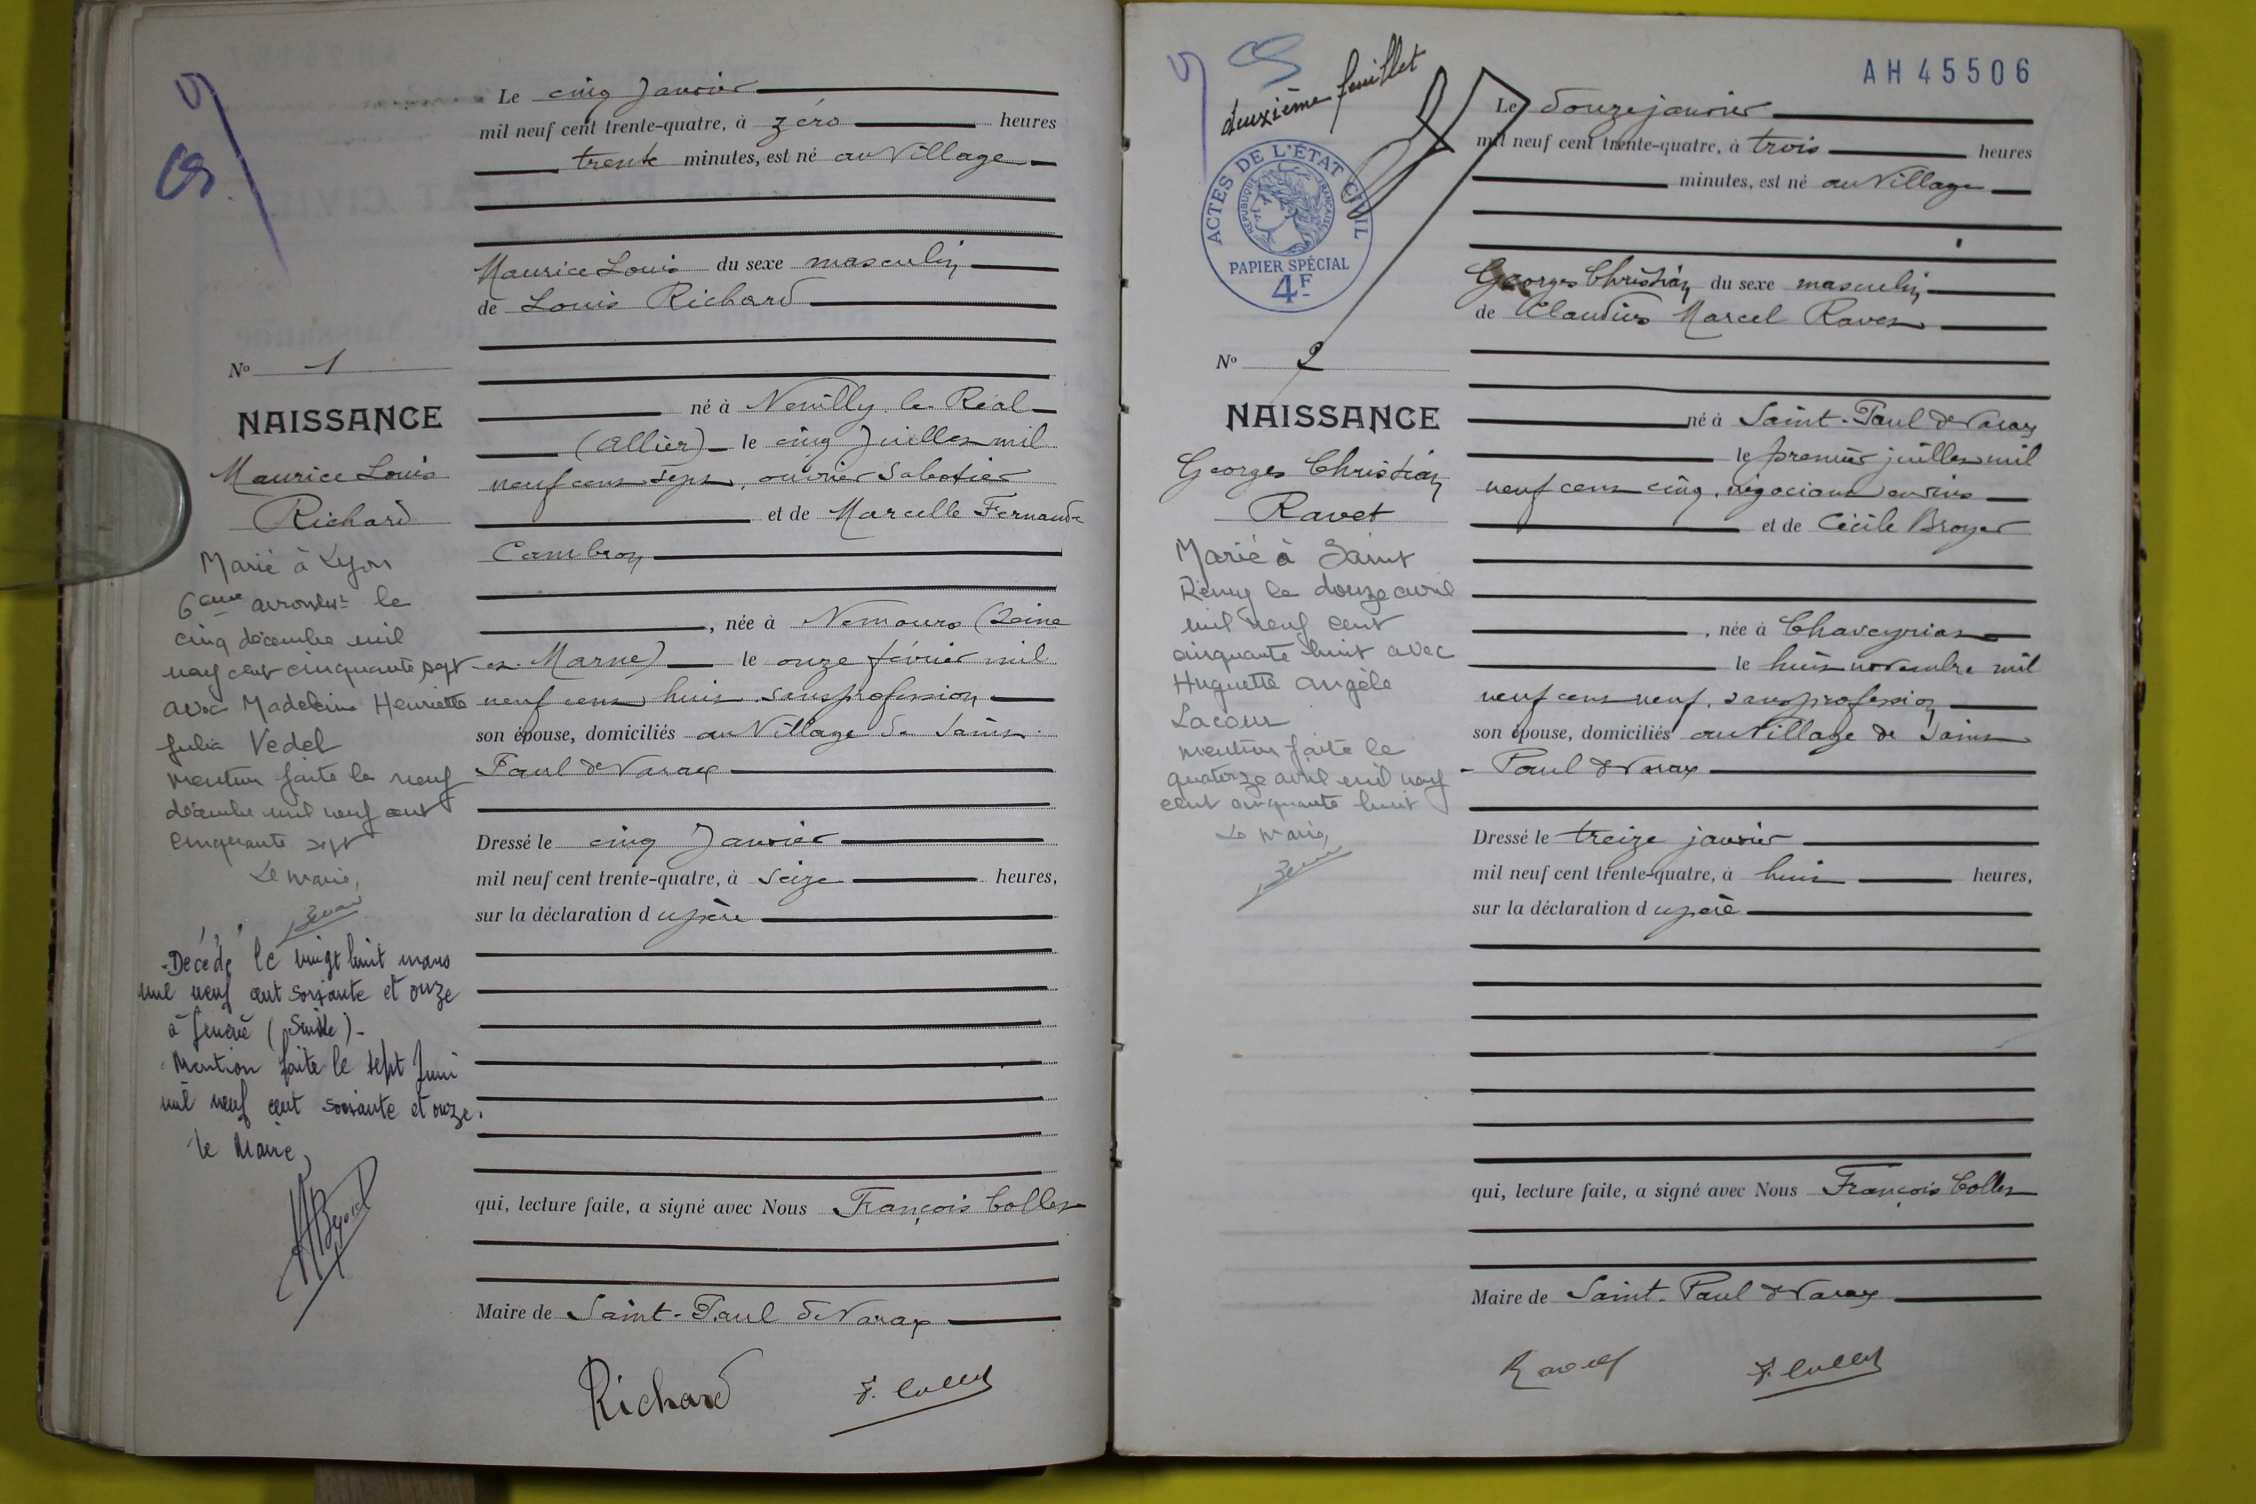 Le cinq Janvier
mil neuf cent trente-quatre, à zéro heures
trente minutes, est né au Village
Maurice Louis du sexe masculin
de Louis Richard
né à Neuilly le Réal
(Allier) le cinq Juillet mil
neuf cent sept, ouvrier sabotier
et de Marcelle Fernande
Cambron
, née à Nemours (Seine
et Marne) le onze février mil
neuf cent huit, sans profession
son épouse, domiciliés au Village de Saint
Paul de Varax
Dressé le cinq Janvier
mil neuf cent trente-quatre, à seize heures,
sur la déclaration du père
qui, lecture faite, a signé avec Nous François Collet
Maire de Saint-Paul de Varax
Richard F. Collet
No 1
NAISSANCE
Maurice Louis
Richard
Marié à Lyon
6ème arrondist le
cinq décembre mil
neuf cent cinquante sept
avec Madeleine Henriette
Julia Vedel
mention faite le neuf
décembre mil neuf cent
cinquante sept
Le maire,
Décédé le vingt huit mars
mil neuf cent soixante et onze
à Genève (Suisse)-
Mention faite le sept Juin
mil neuf cent soixante et onze.
Le Maire,
deuxième feuillet
AH45506
ACTES DE L'ÉTAT CIVIL
RÉPUBLIQUE FRANÇAISE
PAPIER SPÉCIAL
4F
Le douze janvier
mil neuf cent trente-quatre, à trois heures
minutes, est né au Village
Georges Christian du sexe masculin
de Claudius Marcel Ravet
né à Saint-Paul de Varax
le premier juillet mil
neuf cent cinq, négociant en vins
et de Cécile Broyer
, née à Chaveyriat
le huit novembre mil
neuf cent neuf, sans profession
son épouse, domiciliés au Village de Saint
- Paul de Varax
Dressé le treize janvier
mil neuf cent trente-quatre, à huit heures,
sur la déclaration du père
qui, lecture faite, a signé avec Nous François Collet
Maire de Saint-Paul de Varax
Ravet F. Collet
No 2
NAISSANCE
Georges Christian
Ravet
Marié à Saint
Rémy le douze avril
mil neuf cent
cinquante huit avec
Huguette Angèle
Lacour
mention faite le
quatorze avril mil neuf
cent cinquante huit
Le maire,